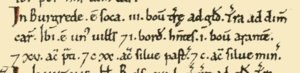 In Burgrede. ē soca. III. bou̅ t̅re̅ ad gl̅d. T̅ra ad dim̅
car̅. Ibi ē un̅ uill̅s 7 I. bord̅. hn̅tes. I. bou̅ arante̅.
7 XV. ac̅ p̅ti. 7 C 7 XX. ac̅ siluæ past̅. 7 C. ac̅ siluæ min̅.